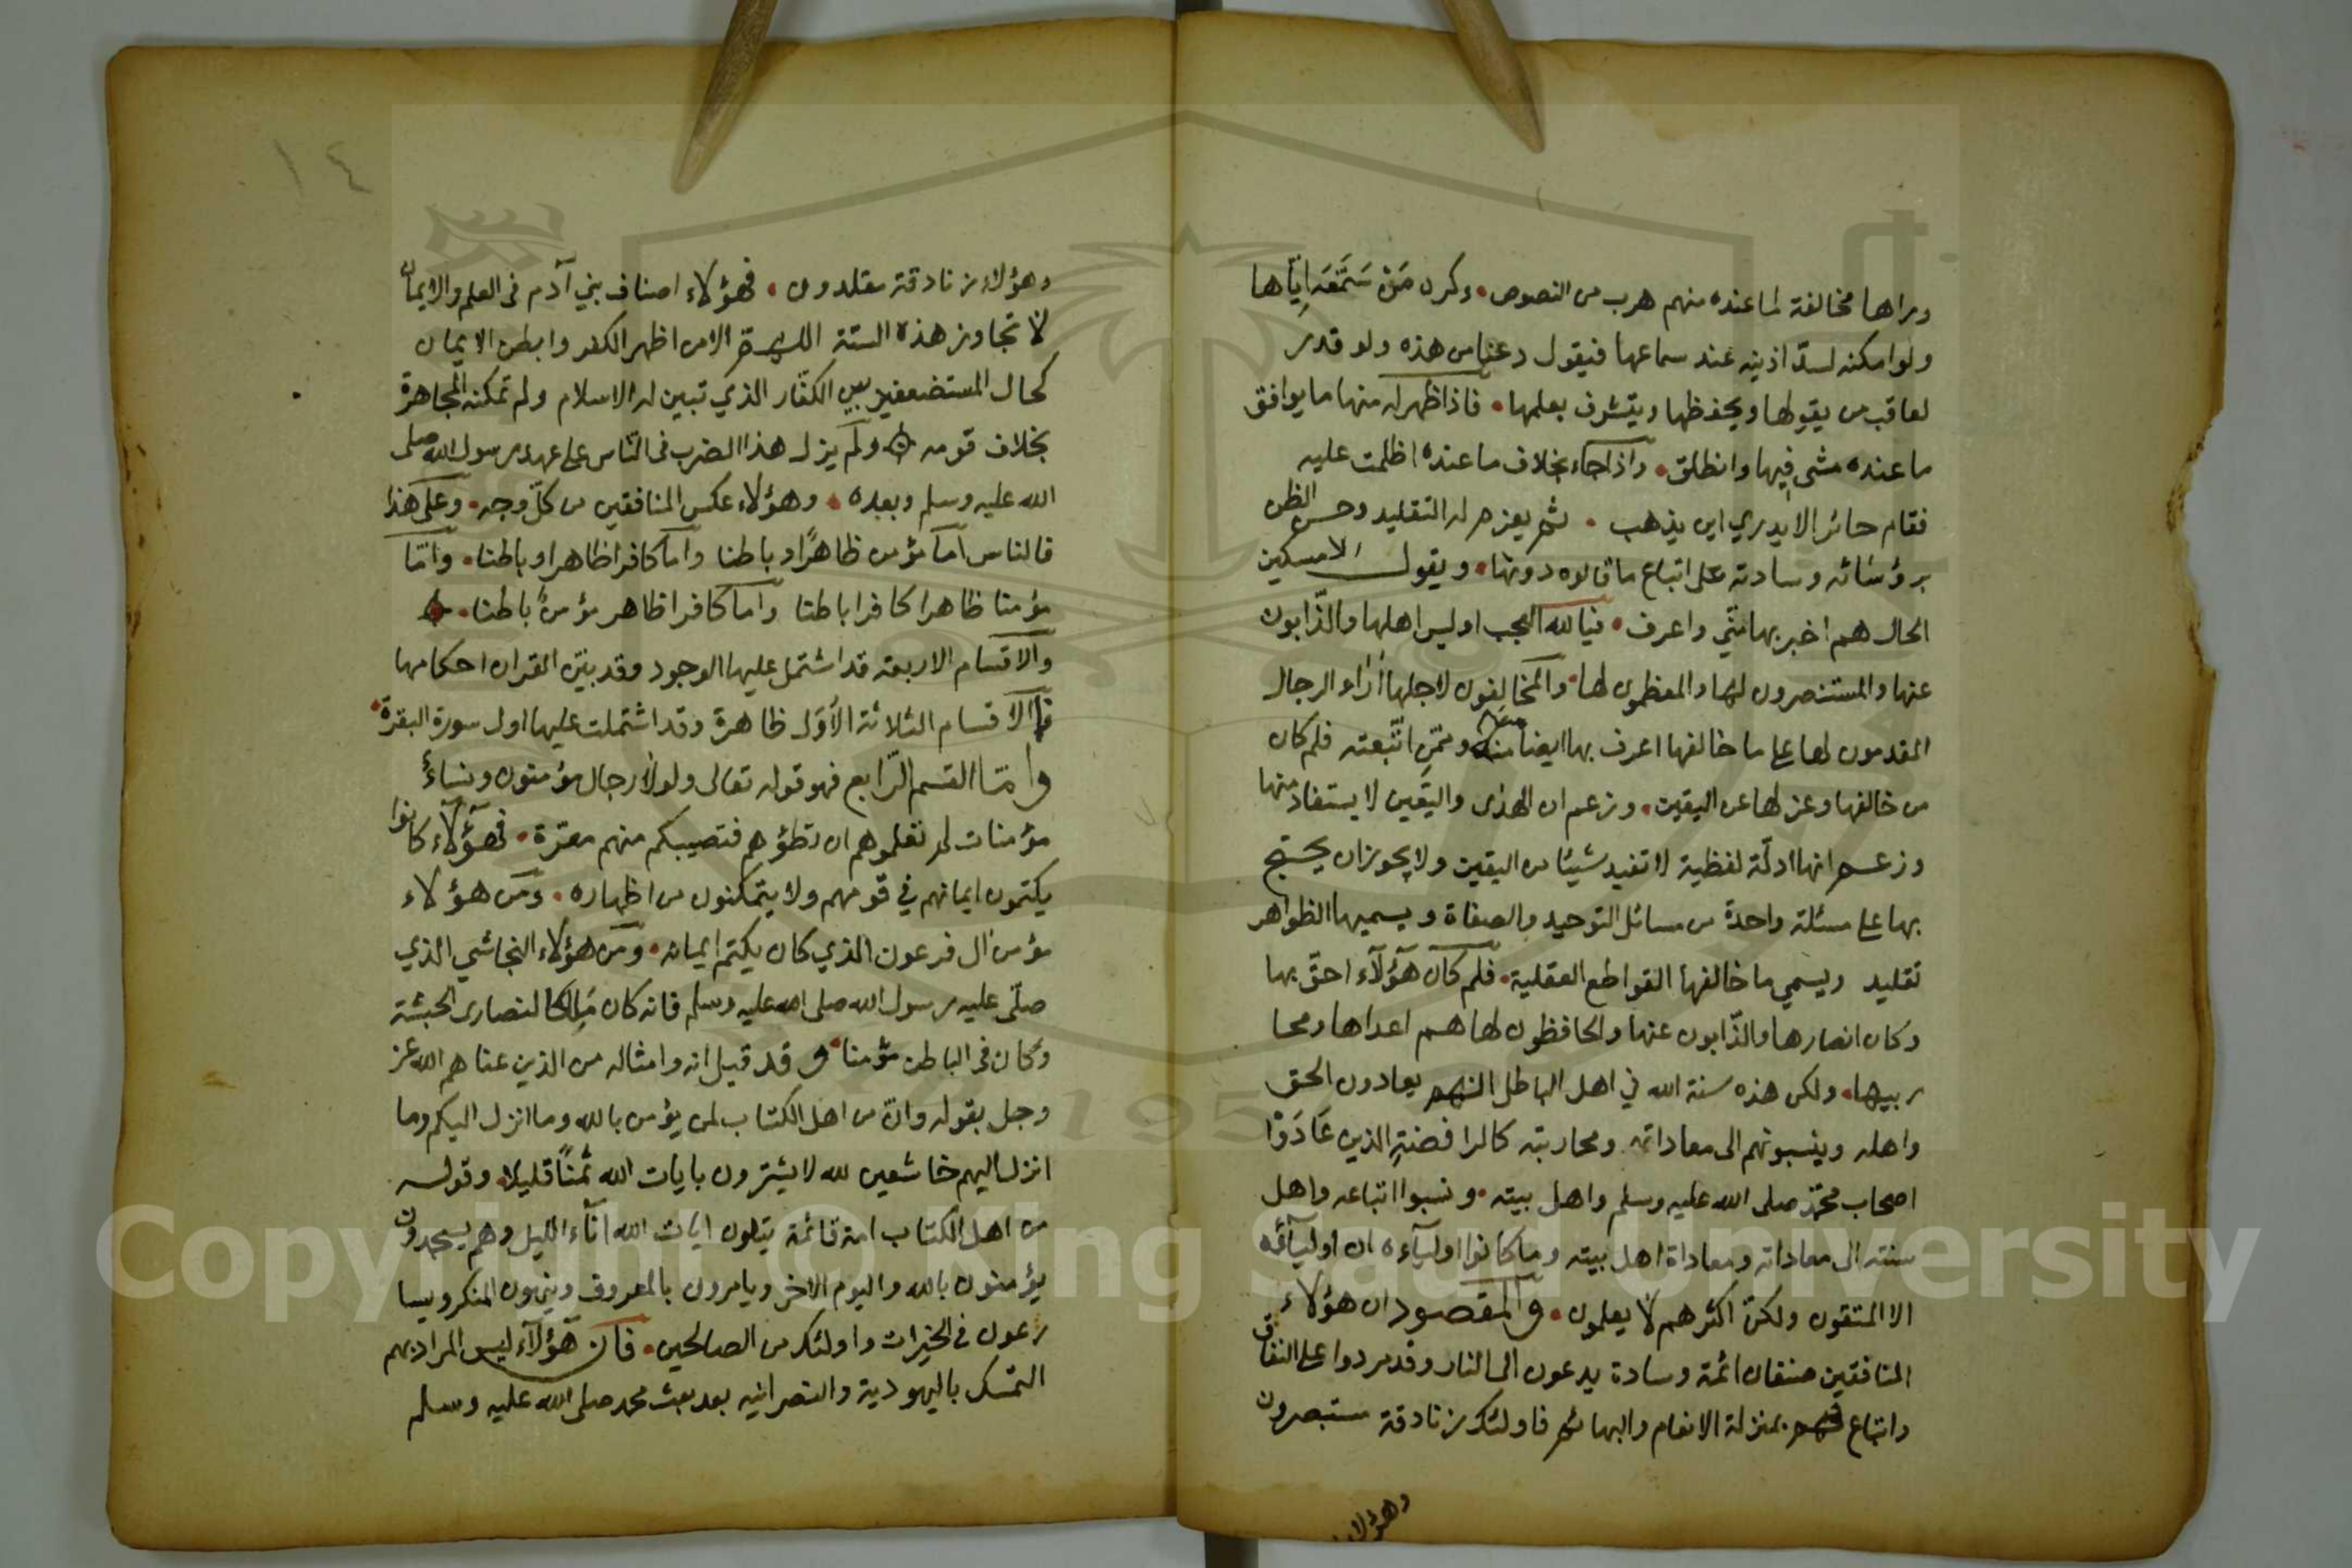 وراها مخالفة لما عنده منهم هرب من النصوص • وكره مَنْ سَمَّعَه اِيّاها
ولو امكنه لسدّ اذنيه عند سماعها فيقول دعنا من هذه ولو قدر
لعاقب من يقولها ويحفظها ويتشرف بعلمها • فاذا ظهر له منها ما يوافق
ما عنده مشى فيها وانطلق • واذا جاء بخلاف ما عنده اظلمت عليه
فقام حائرا لا يدري اين يذهب • ثم يعزم له التقليد وحسن الظن
برؤسائه وسادته على اتباع ما قالوه دونها • ويقول مسكين
الحال هم اخبر بها مني واعرف • فيا لله العجب اوليس اهلها والذّابون
عنها والمستنصرون لها والمعظمون لها • والمخالفون لاجلها ارآء الرجال
المقدمون لها على ما خالفها اعرف بها ايضا منك وممّن اتّبعته فلم كان
من خالفها وعزلها عن اليقين • وزعم ان الهدى واليقين لا يستفاد منها
وزعم انها ادلّة لفظية لا تفيد شيئا من اليقين ولا يجوز ان يحتج
بها على مسئلة واحدة من مسائل التوحيد والصفاة ويسميها الظواهر
تقليد ويسمي ما خالفها القواطع العقلية • فلم كان هؤلآء احقّ بها
وكان انصارها والذّابون عنها والحافظون لها هم اعداها ومحا
ربيها • ولكن هذه سنة الله في اهل الباطل انهم يعادون الحق
واهله وينسبونهم الى معاداته ومحاربته كالرافضة الذين عَادَوْا
اصحاب محمّد صلى الله عليه وسلم واهل بيته • ونسبوا اتباعه واهل
سنته الى معاداته ومعاداة اهل بيته وما كانوا اوليآءه ان اوليآئه
الا المتقون ولكنّ اكثرهم لا يعلمون • والمقصود ان هؤلاء
المنافقين صنفان ائمة وسادة يدعون الى النار وقد مردوا على النفاق
واتباع لهم بمنزلة الانعام والبهائم فاولئك زنادقة مستبصرون
وهؤلاء
١٤
وهؤلاء زنادقة مقلدون • فهؤلاء اصناف بني آدم فى العلم والايمان
لا تجاوز هذه الستة اللهم الا من اظهر الكفر وابطن الايمان
كحال المستضعفين بين الكفّار الذي تبين له الاسلام ولم تمكنه المجاهرة
بخلاف قومه ولم يزل هذا الضرب فى النّاس على عهد رسول الله صلى
الله عليه وسلم وبعده • وهؤلاء عكس المنافقين من كلّ وجه • وعلى هذا
فالناس اما مؤمن ظاهرًا وباطنا واما كافر ظاهرا وباطنا • وامّا
مؤمنا ظاهرا كافرا باطنا واما كافرا ظاهر مؤمن باطنا •
والاقسام الاربعة قد اشتمل عليها الوجود وقد بيّن القران احكامها
فالاقسام الثلاثة الأوَل ظاهرة وقد اشتملت عليها اول سورة البقرة •
وامّا القسم الرّابع فهو قوله تعالى ولولا رجال مؤمنون ونساءٌ
مؤمنات لم تعلموهم ان تطؤهم فتصيبكم منهم معرّة • فهؤلآء كانوا
يكتمون ايمانهم في قومهم ولا يتمكنون من اظهاره • ومن هؤلاء
مؤمن ال فرعون الذي كان يكتم ايمانه • ومن هؤلاء النجاشي الذي
صلّى عليه رسول الله صلى الله عليه وسلم فانه كان مَلِكا لنصارى الحبشة
وكان فى الباطن مؤمنا • وقد قيل انه وامثاله من الذين عناهم الله عز
وجل بقوله وانّ من اهل الكتاب لمن يؤمن بالله وما انزل اليكم وما
انزل اليهم خاشعين لله لا يشترون بايات الله ثمنًا قليلا • وقوله
من اهل الكتاب امة قائمة يتلون ايات الله انآء الليل وهم يسجدون
يؤمنون بالله واليوم الاخر ويامرون بالمعروف وينهون المنكر ويسا
رعون فى الخيرات واولئك من الصالحين • فان هؤلآء ليس المراد بهم
التمسك باليهودية والنصرانيه بعد بعث محمد صلى الله عليه وسلم
Copyright © King Saud University
1957